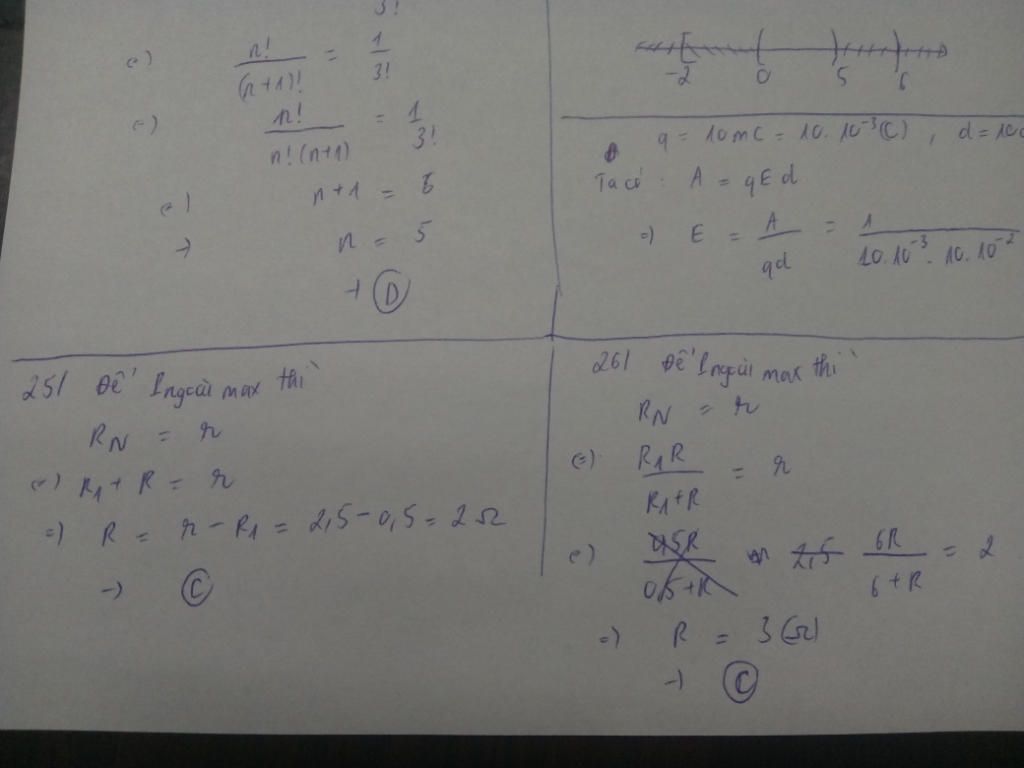 3!
(=) n!/(n+1)! = 1/3!
(=) n!/n!(n+1) = 1/3!
(=) n+1 = 6
→ n = 5
→ D
-2 0 5 6
q = 10mC = 10.10⁻³(C) , d = 10
Ta có : A = qEd
=) E = A/qd = 1/10.10⁻³.10.10⁻²
25/ Để Ingoài max thì
R_N = r
(=) R₁ + R = r
=) R = r - R₁ = 2,5 - 0,5 = 2 Ω
→ C
26/ Để Ingoài max thì
R_N = r
(=) R₁R/R₁+R = r
(=) 0,5R/0,5+R 2,5 6R/6+R = 2
=) R = 3(Ω)
→ C